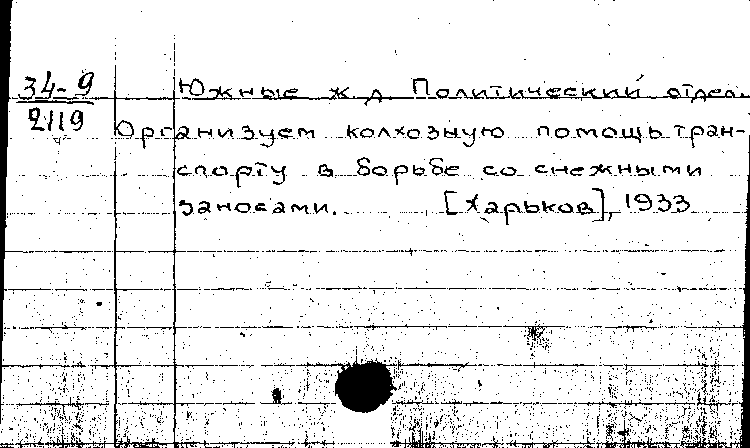 34-9
2119
Южные ж.д. Политический отдел.
Организуем колхозную помощь тран-
спорту в борьбе со снежными
заносами. [Харьков], 1933